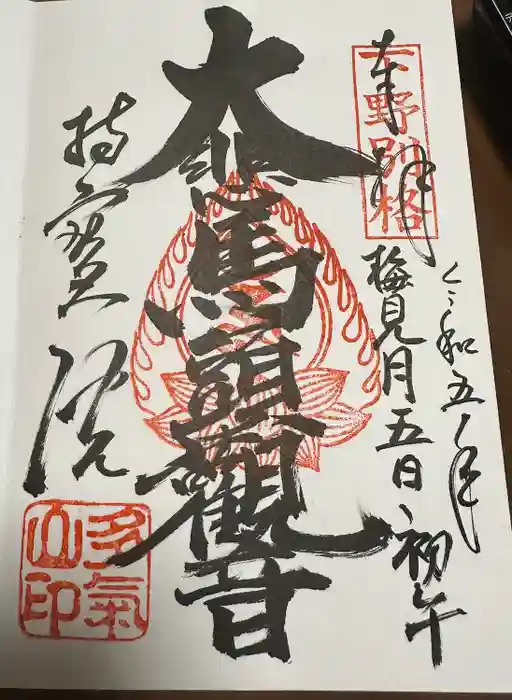 奉拝
下野別格
令和五年
梅見月五日、初午
大悲馬頭觀音
持寳院
多氣山印